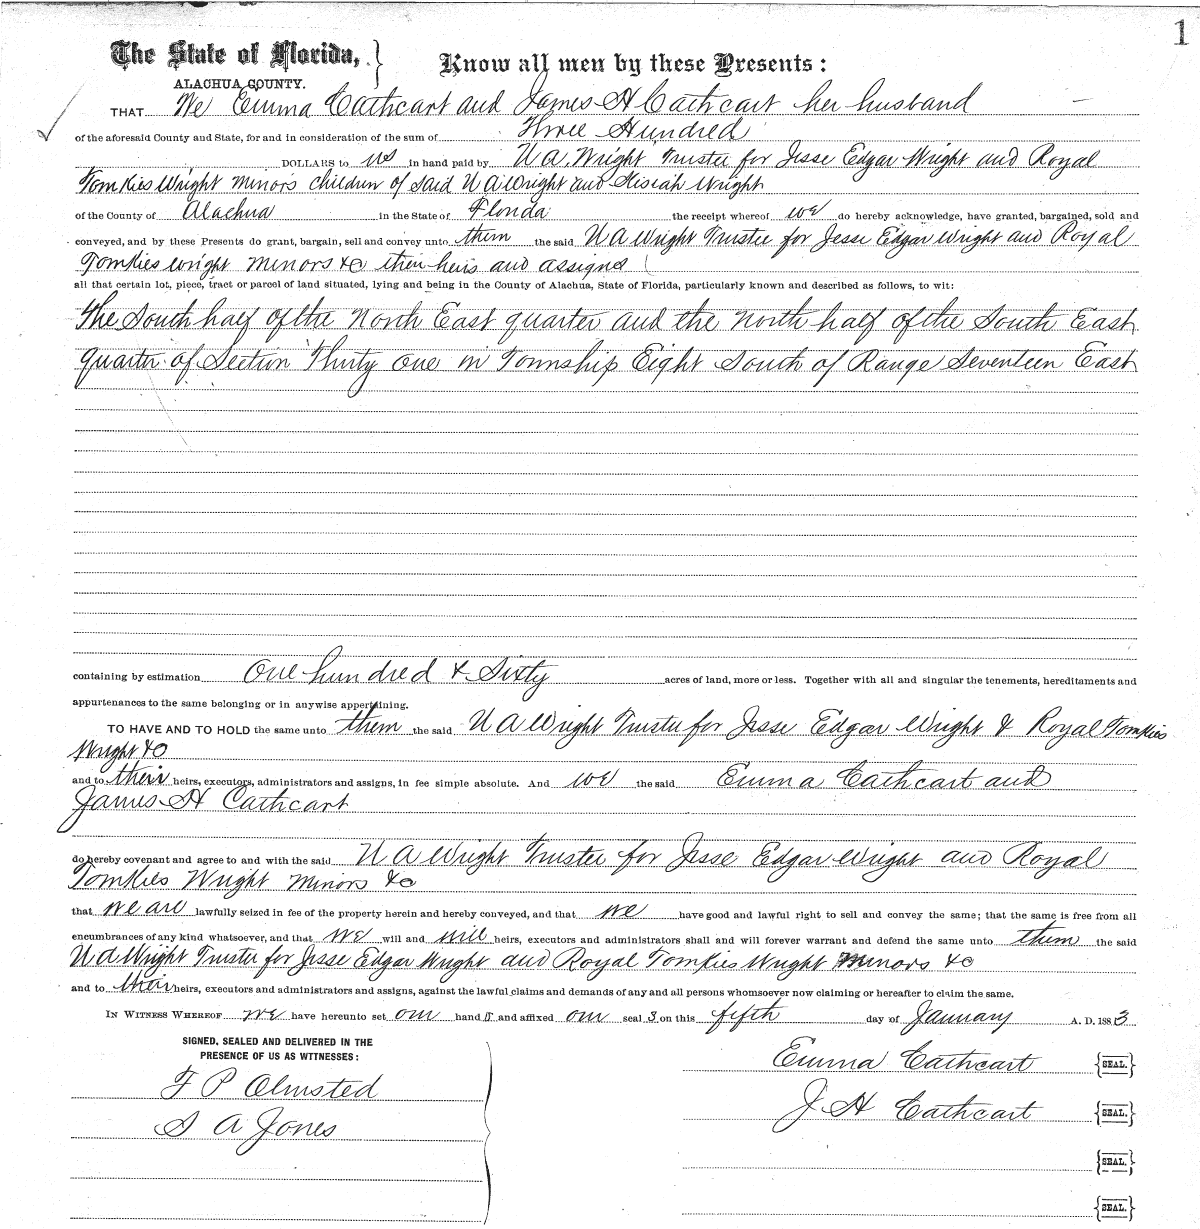 1
The State of Florida,
ALACHUA COUNTY.
Know all men by these Presents:
THAT We Emma Cathcart and James H Cathcart her husband
of the aforesaid County and State, for and in consideration of the sum of Three Hundred
DOLLARS to us in hand paid by U A. Wright Trustee for Jesse Edgar Wright and Royal
Tomkies Wright minors children of said U A Wright and Kisiah Wright
of the County of Alachua in the State of Florida the receipt whereof we do hereby acknowledge, have granted, bargained, sold and
conveyed, and by these Presents do grant, bargain, sell and convey unto them the said U A Wright Trustee for Jesse Edgar Wright and Royal
Tomkies Wright minors &c their heirs and assigns
all that certain lot, piece, tract or parcel of land situated, lying and being in the County of Alachua, State of Florida, particularly known and described as follows, to wit:
The South half of the North East quarter and the North half of the South East
quarter of Section Thirty One in Township Eight South of Range Seventeen East
containing by estimation One hundred & Sixty acres of land, more or less. Together with all and singular the tenements, hereditaments and
appurtenances to the same belonging or in anywise appertaining.
TO HAVE AND TO HOLD the same unto them the said U A Wright Trustee for Jesse Edgar Wright & Royal Tomkies
Wright &c
and to their heirs, executors, administrators and assigns, in fee simple absolute. And we the said Emma Cathcart and
James H Cathcart
do hereby covenant and agree to and with the said U A Wright Trustee for Jesse Edgar Wright and Royal
Tomkies Wright minors &c
that we are lawfully seized in fee of the property herein and hereby conveyed, and that we have good and lawful right to sell and convey the same; that the same is free from all
encumbrances of any kind whatsoever, and that we will and will heirs, executors and administrators shall and will forever warrant and defend the same unto them the said
U A Wright Trustee for Jesse Edgar Wright and Royal Tomkies Wright minors &c
and to their heirs, executors and administrators and assigns, against the lawful claims and demands of any and all persons whomsoever now claiming or hereafter to claim the same.
IN WITNESS WHEREOF we have hereunto set our hand s and affixed our seal s on this fifth day of January A. D. 1883
SIGNED, SEALED AND DELIVERED IN THE
PRESENCE OF US AS WITNESSES:
Emma Cathcart {SEAL.}
F P Olmsted
J H Cathcart {SEAL.}
S A Jones
{SEAL.}
{SEAL.}